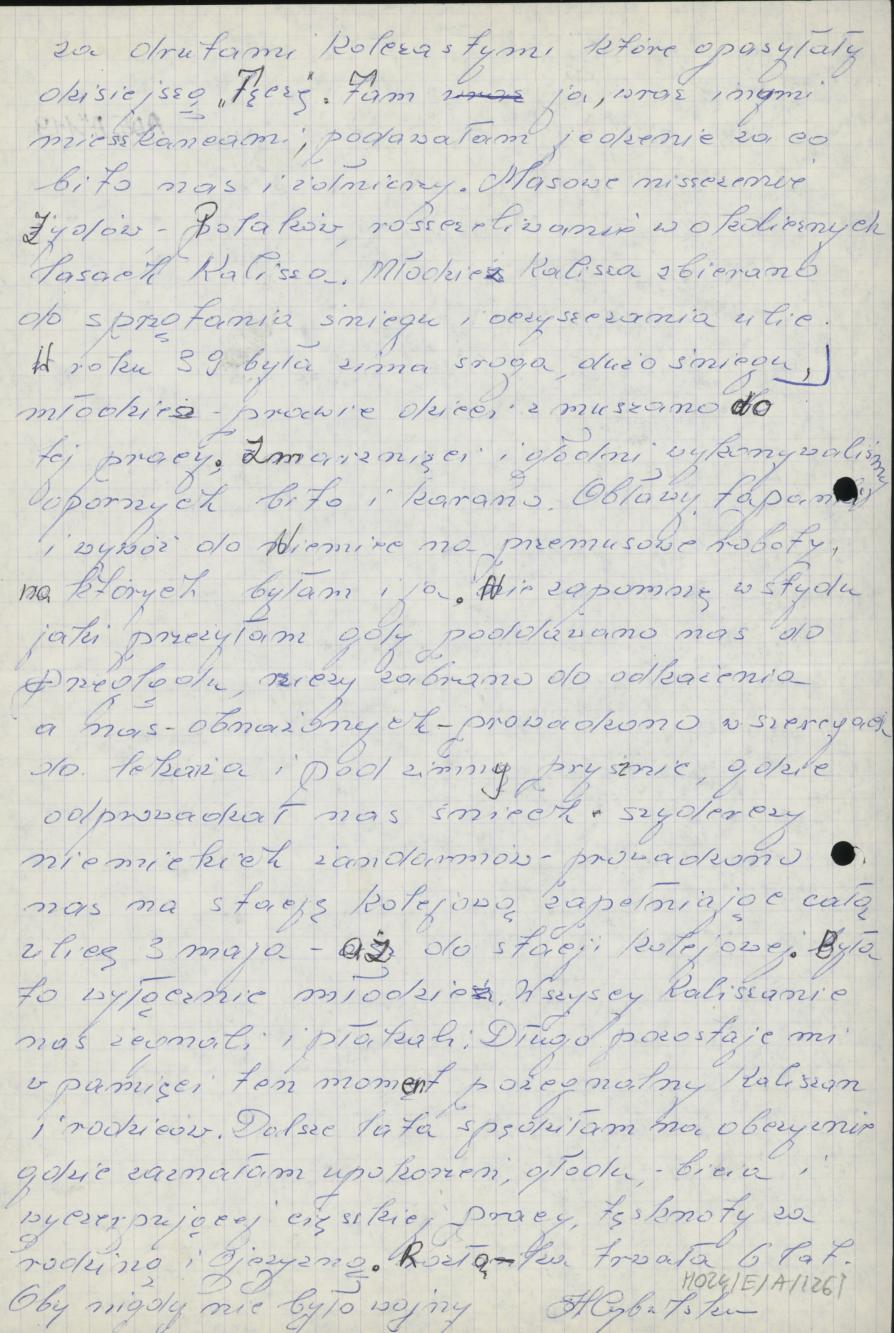 za drutami kolczastymi które opasytały
dzisiejszą "Tęczę". Tam wraz ja, wraz innymi
mieszkańcami, podawałam jedzenie za co
bito nas i żołnierzy. Masowe niszczenie
Żydów - Polaków, rozszeliwanie w okolicznych
lasach Kalisza. Młodzież Kalisza zbierano
do sprzątania śniegu i oczyszczania ulic.
W roku 39 była zima sroga, dużo śniegu,
młodzież - prawie dzieci zmuszano do
tej pracy. Zmarznięci i głodni wykonywaliśmy
opornych bito i karano. Obławy, łapanki
i wywóz do Niemiec na przemusowe roboty,
na których byłam i ja. Nie zapomnę wstydu
jaki przeżyłam gdy poddawano nas do
Przeglądu, rzeczy zabrano do odkażenia
a nas - obnażonych - prowadzono w szeregach
do lekarza i pod zimny prysznic, gdzie
odprowadzał nas śmiech szyderczy
niemieckich żandarmów - prowadzono
nas na stację kolejową zapełniając całą
ulicę 3 maja - aż do stacji kolejowej. Była
to wyłącznie młodzież. Wszyscy Kaliszanie
nas żegnali i płakali. Długo pozostaje mi
w pamięci ten moment pożegnalny Kaliszan
i rodziców. Dalsze lata spędziłam na obczyźnie
gdzie zaznałam upokorzeń, głodu, - bicia i
wyczerpującej ciężkiej pracy, tęsknoty za
rodziną i ojczyzną. Rozłąka trwała 6 lat.
Oby nigdy nie było wojny
H024/E/A/1261